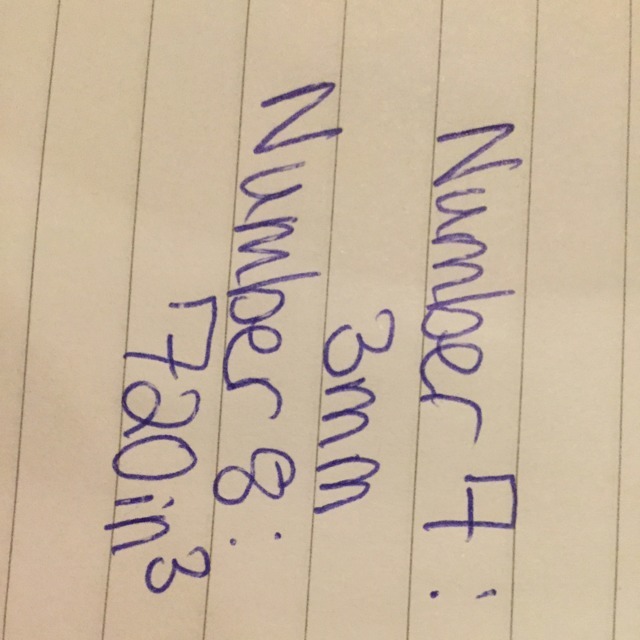 Number 7:
3mm
Number 8:
720in³